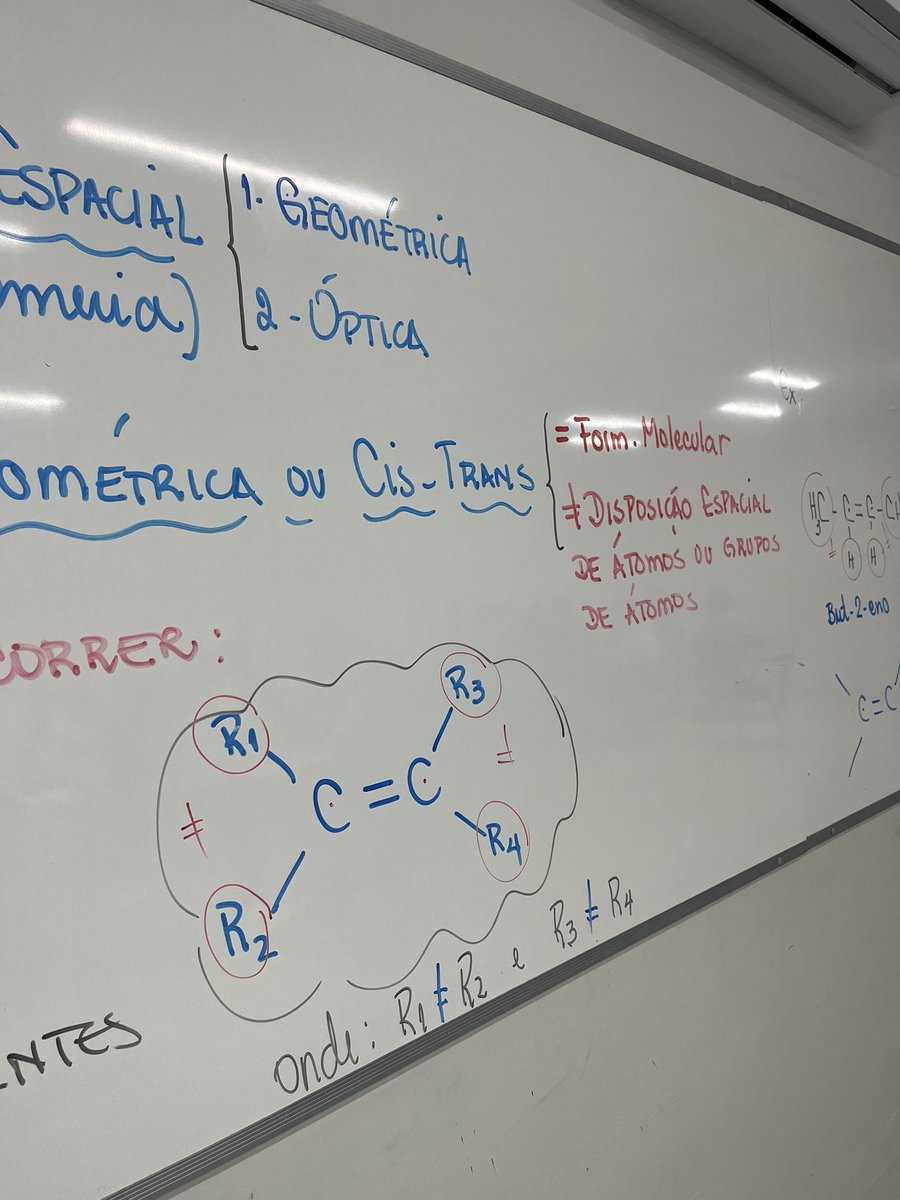 ESPACIAL
1. GEOMÉTRICA
2-ÓPTICA
OMÉTRICA OU CIS-TRANS
= Form. Molecular
≠ DISPOSIÇÃO ESPACIAL
DE ÁTOMOS OU GRUPOS
DE ÁTOMOS
Ex.
H3C-C=C-
H H
But-2-eno
C=C
CORRER:
R1 R3
≠ C=C ≠
R2 R4
onde: R1≠R2 e R3≠R4
ENTES